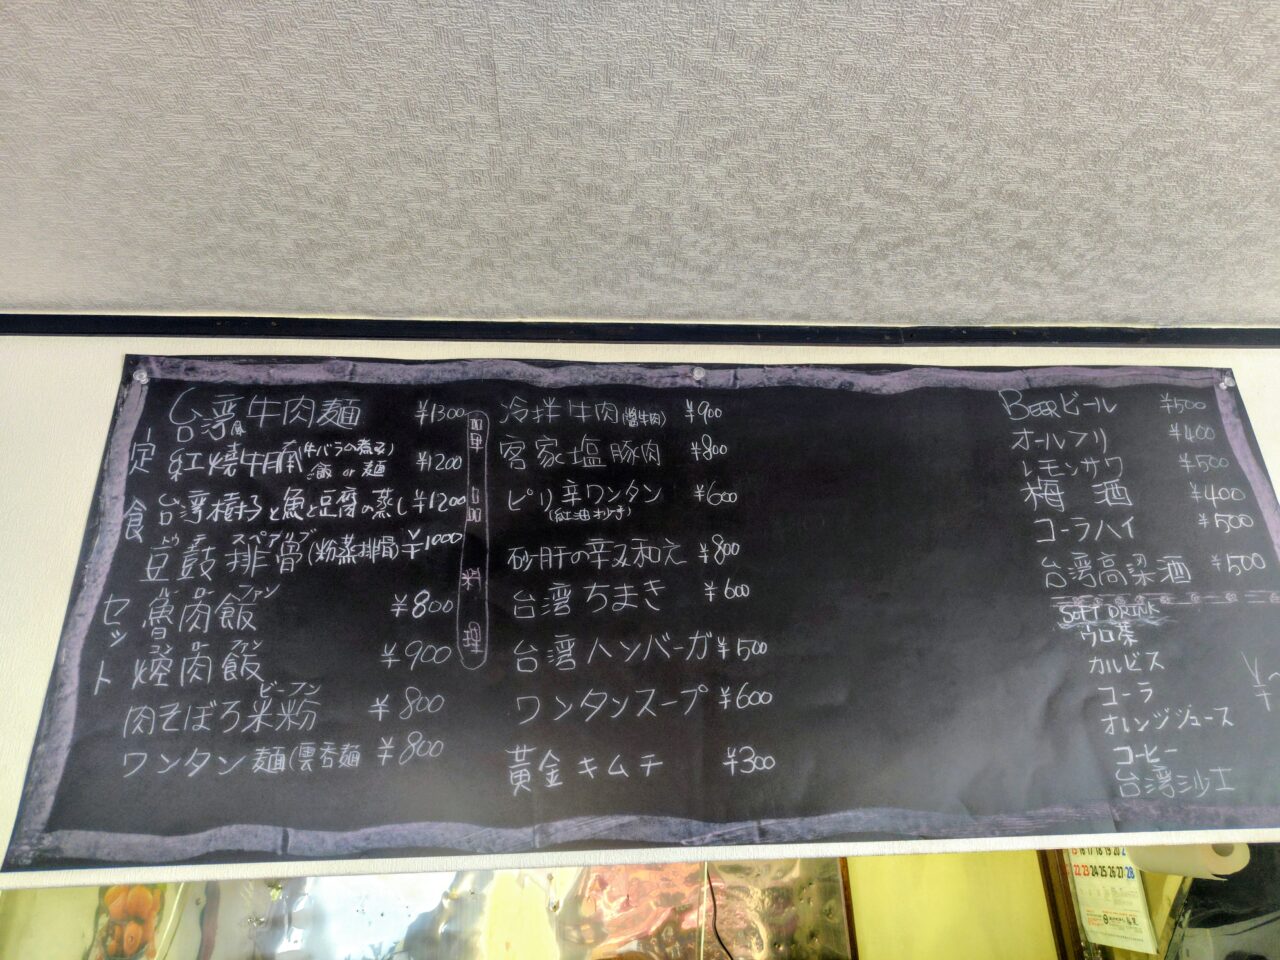 定食
台湾風牛肉麺 ¥1300
紅焼牛腩(牛バラの煮込) ご飯 or 麺 ¥1200
台湾樹子と魚と豆腐の蒸し ¥1200
豆鼓排骨(粉蒸排骨) ¥1000
スペアリブ
セット
魯肉飯 ¥800
ルーローファン
焢肉飯 ¥900
肉そぼろ米粉 ¥800
ビーフン
ワンタン麺(雲呑麺 ¥800
一品料理
冷拌牛肉(醬牛肉) ¥900
客家塩豚肉 ¥800
ピリ辛ワンタン ¥600
(紅油抄手)
砂肝の辛み和え ¥800
台湾ちまき ¥600
台湾ハンバーガ ¥500
ワンタンスープ ¥600
黄金キムチ ¥300
BEERビール ¥500
オールフリ ¥400
レモンサワ ¥500
梅酒 ¥400
コーラハイ ¥500
台湾高梁酒 ¥500
SOFT DRINK
ウロ茶
カルピス
コーラ
オレンジジュース
コーヒー
台湾沙士